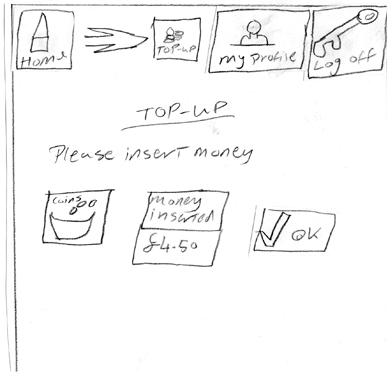 Home
TOP-UP
My Profile
Log off
TOP-UP
Please insert money
Coins
money
inserted
£4.50
OK